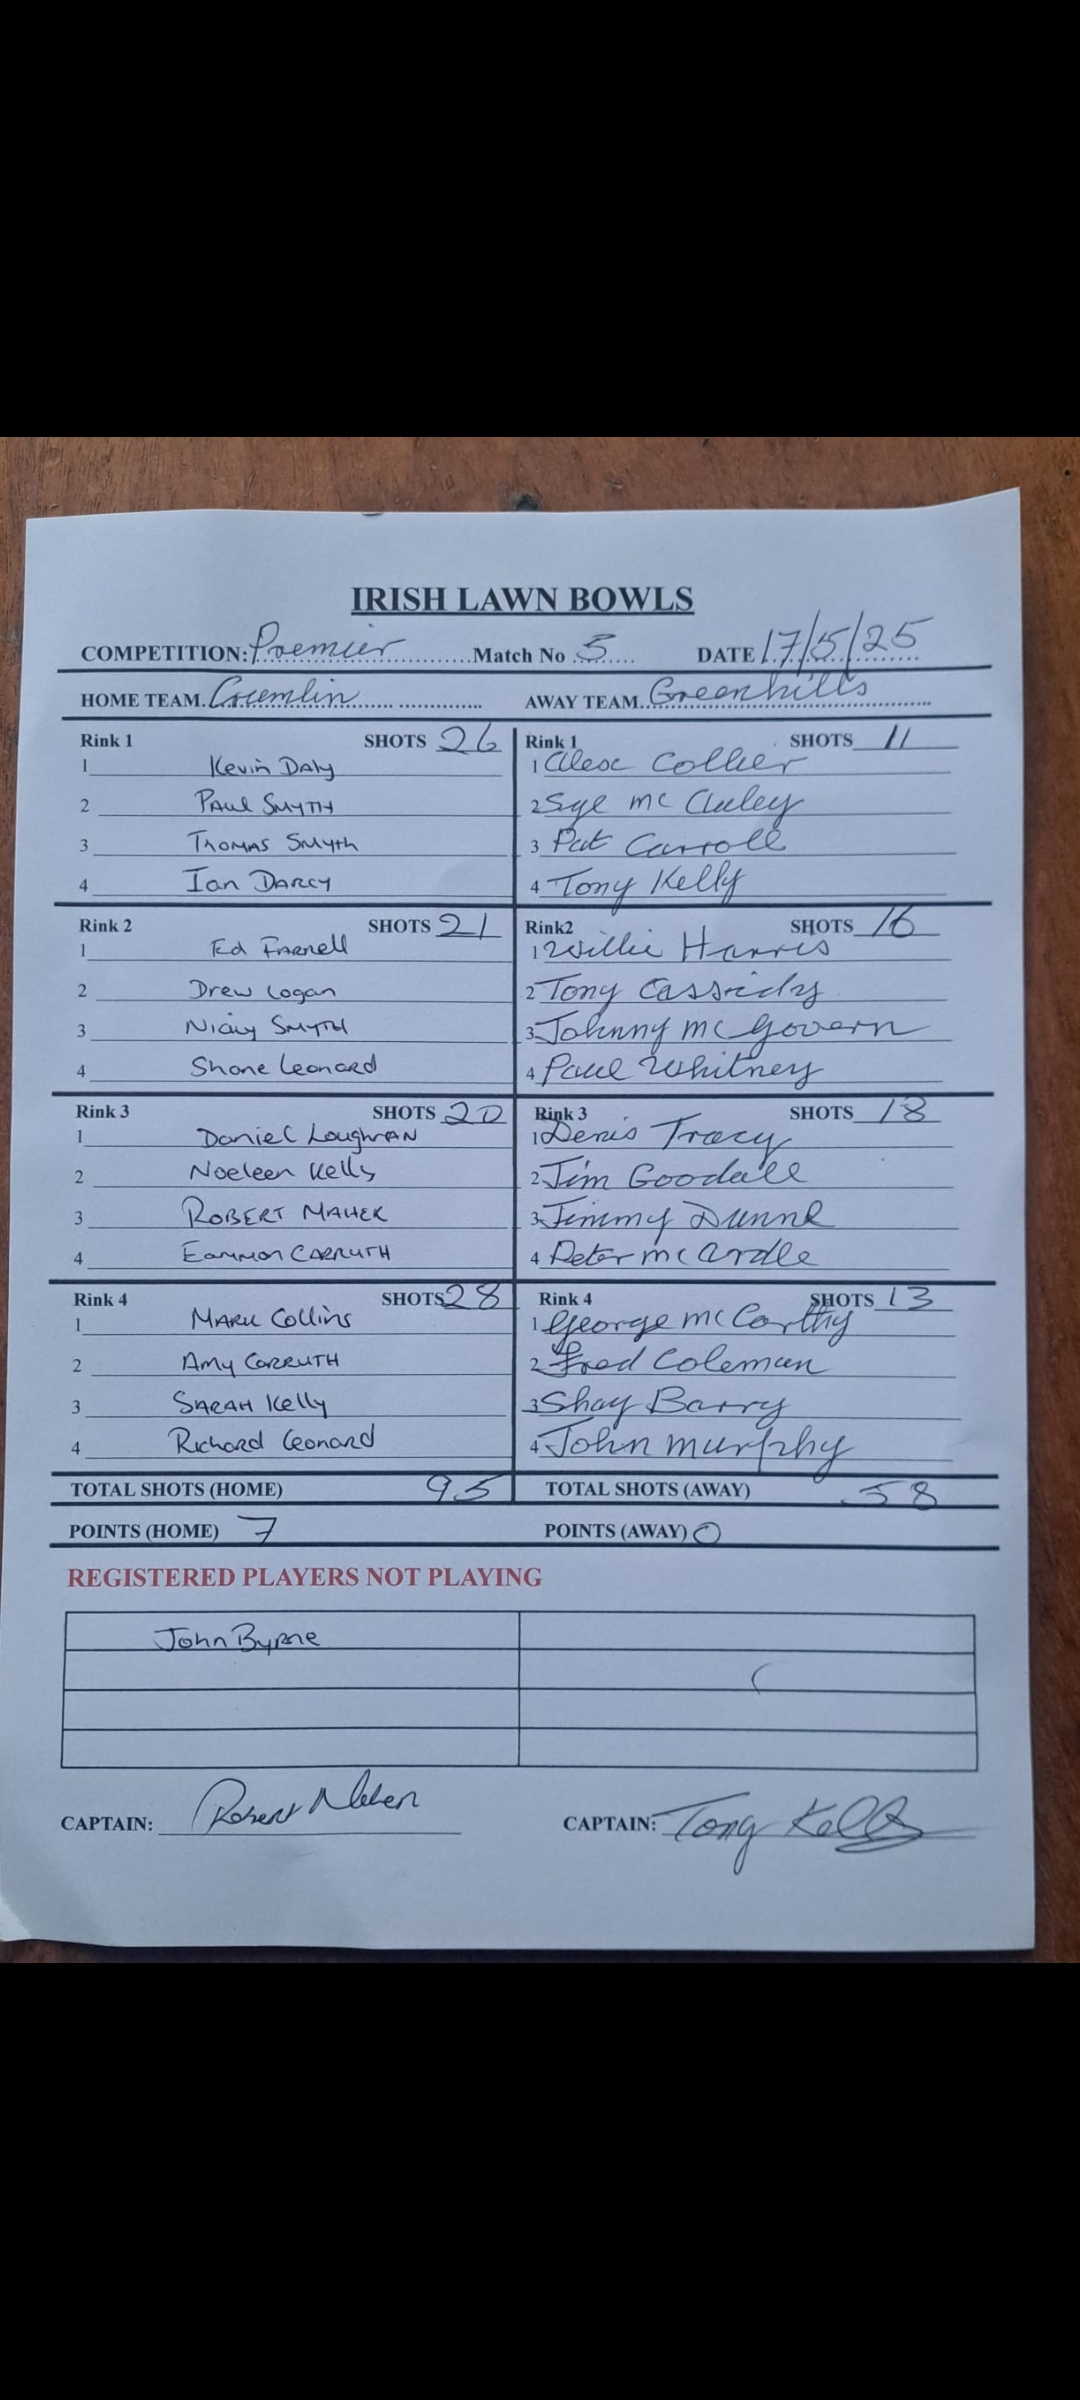 IRISH LAWN BOWLS
COMPETITION: Premier Match No 5 DATE 17/5/25
HOME TEAM. Crumlin AWAY TEAM. Greenhills
Rink 1 SHOTS 26 Rink 1 SHOTS 11
1 Kevin Daly 1 Alex Collier
2 Paul Smyth 2 Sye mc Cluley
3 Thomas Smyth 3 Pat Carroll
4 Ian Darcy 4 Tony Kelly
Rink 2 SHOTS 21 Rink2 SHOTS 16
1 Ed Farnell 1 Willie Harris
2 Drew Logan 2 Tony Cassidy
3 Nicky Smyth 3 Johnny mc Govern
4 Shane Leonard 4 Paul Whitney
Rink 3 SHOTS 20 Rink 3 SHOTS 18
1 Daniel Loughran 1 Denis Tracy
2 Noeleen Kelly 2 Jim Goodall
3 ROBERT MAHER 3 Jimmy Dunne
4 Eammon CARRUTH 4 Peter mc ardle
Rink 4 SHOTS 28 Rink 4 SHOTS 13
1 Mark Collins 1 George mc Carthy
2 Amy CARRUTH 2 Fred Coleman
3 SARAH Kelly 3 Shay Barry
4 Richard Leonard 4 John murphy
TOTAL SHOTS (HOME) 95 TOTAL SHOTS (AWAY) 58
POINTS (HOME) 7 POINTS (AWAY) 0
REGISTERED PLAYERS NOT PLAYING
John Byrne
CAPTAIN: Robert Maher CAPTAIN: Tony Kelly